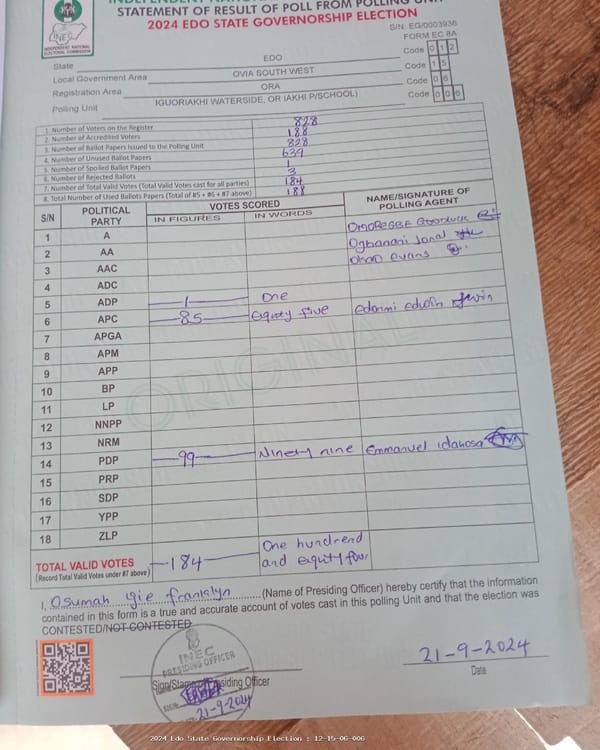 INDEPENDENT NATIONAL ELECTORAL COMMISSION
STATEMENT OF RESULT OF POLL FROM POLLING UNIT
2024 EDO STATE GOVERNORSHIP ELECTION
S/N: EG/0003936
FORM EC 8A
State EDO Code 0 1 2
Local Government Area OVIA SOUTH WEST Code 1 5
Registration Area ORA Code 0 6
Polling Unit IGUORIAKHI WATERSIDE, OR IAKHI P/SCHOOL) Code 0 0 6
1. Number of Voters on the Register 828
2. Number of Accredited Voters 188
3. Number of Ballot Papers Issued to the Polling Unit 828
4. Number of Unused Ballot Papers 639
5. Number of Spoiled Ballot Papers 1
6. Number of Rejected Ballots 3
7. Number of Total Valid Votes (Total Valid Votes cast for all parties) 184
8. Total Number of Used Ballots Papers (Total of #5 + #6 + #7 above) 188
S/N POLITICAL PARTY VOTES SCORED NAME/SIGNATURE OF POLLING AGENT
IN FIGURES IN WORDS
1 A
2 AA
3 AAC
4 ADC
5 ADP 1 One
6 APC 85 Equity five Edonmi Edwin
7 APGA
8 APM
9 APP
10 BP
11 LP
12 NNPP
13 NRM
14 PDP 99 Ninety nine Emmanuel idahosa
15 PRP
16 SDP
17 YPP
18 ZLP
TOTAL VALID VOTES 184 One hundrend and equity four
(Record Total Valid Votes under #7 above)
ORIGINAL
I, Osumah igie franklyn (Name of Presiding Officer) hereby certify that the information
contained in this form is a true and accurate account of votes cast in this polling Unit and that the election was
CONTESTED/NOT CONTESTED
INEC
PRESIDING OFFICER
Sign/Stamp of Presiding Officer
21-9-2024
21-9-2024
Date
2024 Edo State Governorship Election : 12-15-06-006